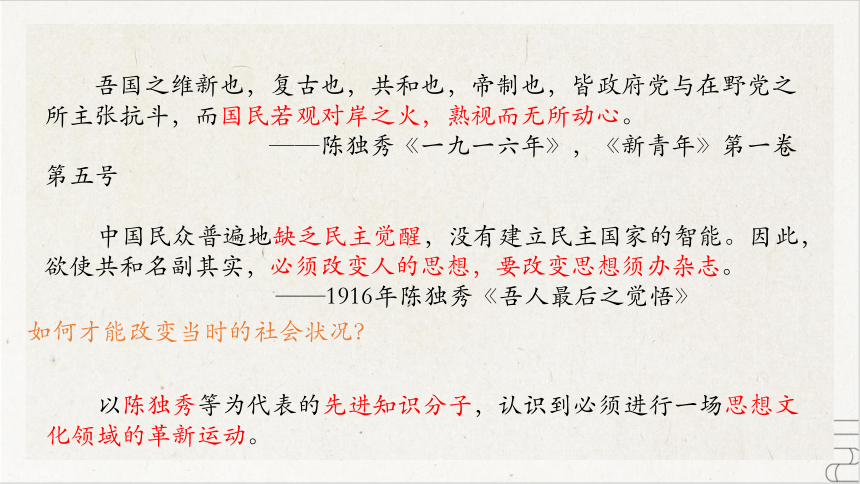 吾国之维新也，复古也，共和也，帝制也，皆政府党与在野党之
所主张抗斗，而国民若观对岸之火，熟视而无所动心。
——陈独秀《一九一六年》，《新青年》第一卷
第五号
中国民众普遍地缺乏民主觉醒，没有建立民主国家的智能。因此，
欲使共和名副其实，必须改变人的思想，要改变思想须办杂志。
——1916年陈独秀《吾人最后之觉悟》
如何才能改变当时的社会状况？
以陈独秀等为代表的先进知识分子，认识到必须进行一场思想文
化领域的革新运动。